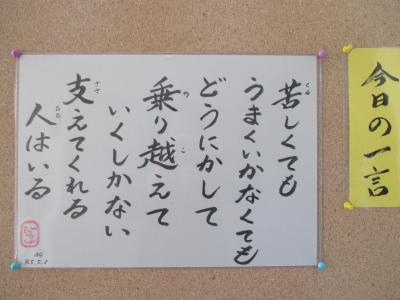 今日の一言
苦しくても
うまくいかなくても
どうにかして
乗り越えて
いくしかない
支えてくれる
人はいる